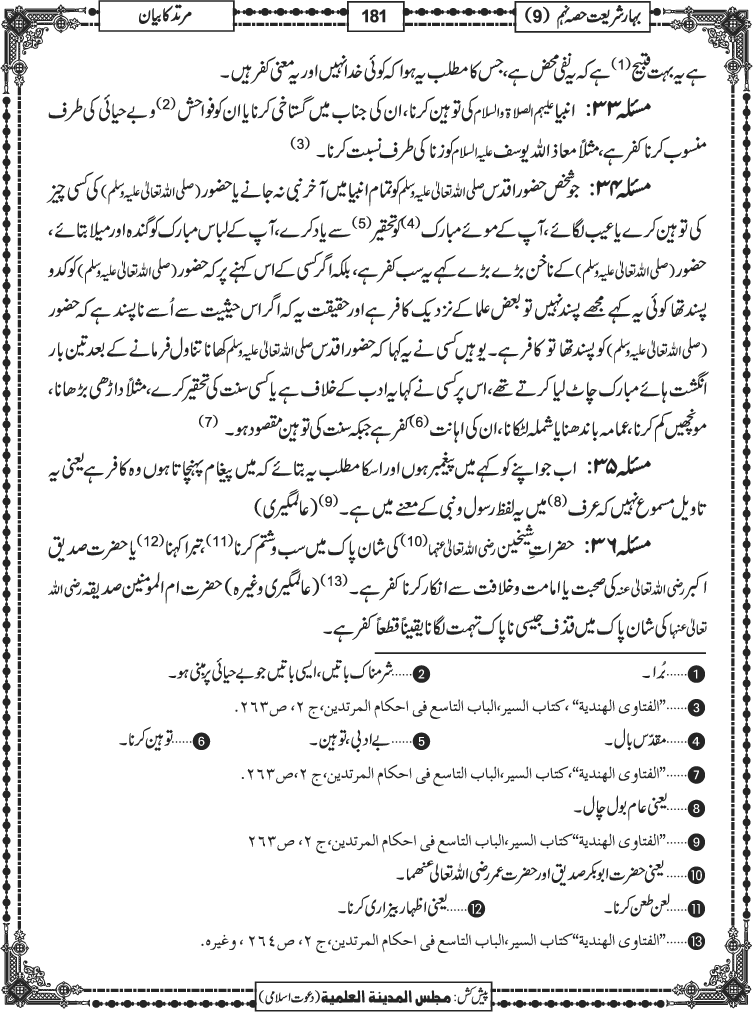 بہارِ شریعت حصہ نہم (9)
181
مرتد کا بیان
ہے یہ بہت قبیح (1) ہے کہ یہ نفی محض ہے، جس کا مطلب یہ ہوا کہ کوئی خدا نہیں اور یہ معنی کفر ہیں۔
مسئلہ ۳۳: انبیا علیہم الصلاۃ والسلام کی توہین کرنا، ان کی جناب میں گستاخی کرنا یا ان کو فواحش (2) و بے حیائی کی طرف
منسوب کرنا کفر ہے، مثلاً معاذ اللہ یوسف علیہ السلام کو زنا کی طرف نسبت کرنا۔ (3)
مسئلہ ۳۴: جو شخص حضور اقدس صلی اللہ تعالیٰ علیہ وسلم کو تمام انبیا میں آخر نبی نہ جانے یا حضور (صلی اللہ تعالیٰ علیہ وسلم) کی کسی چیز
کی توہین کرے یا عیب لگائے، آپ کے موئے مبارک (4) کو تحقیر (5) سے یاد کرے، آپ کے لباس مبارک کو گندہ اور میلا بتائے،
حضور (صلی اللہ تعالیٰ علیہ وسلم) کے ناخن بڑے بڑے کہے یہ سب کفر ہے، بلکہ اگر کسی کے اس کہنے پر کہ حضور (صلی اللہ تعالیٰ علیہ وسلم) کو کدو
پسند تھا کوئی یہ کہے مجھے پسند نہیں تو بعض علما کے نزدیک کافر ہے اور حقیقت یہ کہ اگر اس حیثیت سے اُسے ناپسند ہے کہ حضور
(صلی اللہ تعالیٰ علیہ وسلم) کو پسند تھا تو کافر ہے۔ یوہیں کسی نے یہ کہا کہ حضور اقدس صلی اللہ تعالیٰ علیہ وسلم کھانا تناول فرمانے کے بعد تین بار
انگشت ہائے مبارک چاٹ لیا کرتے تھے، اس پر کسی نے کہا یہ ادب کے خلاف ہے یا کسی سنت کی تحقیر کرے، مثلاً داڑھی بڑھانا،
مونچھیں کم کرنا، عمامہ باندھنا یا شملہ لٹکانا، ان کی اہانت (6) کفر ہے جبکہ سنت کی توہین مقصود ہو۔ (7)
مسئلہ ۳۵: اب جو اپنے کو کہے میں پیغمبر ہوں اور اسکا مطلب یہ بتائے کہ میں پیغام پہنچاتا ہوں وہ کافر ہے یعنی یہ
تاویل مسموع نہیں کہ عرف (8) میں یہ لفظ رسول و نبی کے معنے میں ہے۔ (9) (عالمگیری)
مسئلہ ۳۶: حضراتِ شیخین رضی اللہ تعالیٰ عنہما (10) کی شان پاک میں سب و شتم کرنا (11)، تبرا کہنا (12) یا حضرت صدیق
اکبر رضی اللہ تعالیٰ عنہ کی صحبت یا امامت و خلافت سے انکار کرنا کفر ہے۔ (13) (عالمگیری وغیرہ) حضرت ام المومنین صدیقہ رضی اللہ
تعالیٰ عنہا کی شان پاک میں قذف جیسی ناپاک تہمت لگانا یقیناً قطعاً کفر ہے۔
1 ......بُرا۔ 2 ......شرمناک باتیں، ایسی باتیں جو بے حیائی پر مبنی ہو۔
3 ......"الفتاوى الهندية" ،كتاب السير،الباب التاسع فى احكام المرتدين،ج ۲، ص۲۶۳.
4 ......مقدّس بال۔ 5 ......بے ادبی، توہین۔ 6 ......توہین کرنا۔
7 ......"الفتاوى الهندية"،كتاب السير،الباب التاسع فى احكام المرتدين،ج ۲،ص۲۶۳.
8 ......یعنی عام بول چال۔
9 ......"الفتاوى الهندية"كتاب السير،الباب التاسع فى احكام المرتدين،ج ۲، ص۲۶۳
10 ......یعنی حضرت ابوبکر صدیق اور حضرت عمر رضی اللہ تعالیٰ عنهما۔
11 ......لعن طعن کرنا۔ 12 ......یعنی اظہار بیزاری کرنا۔
13 ......"الفتاوى الهندية"كتاب السير،الباب التاسع فى احكام المرتدين،ج ۲، ص۲۶۴ ، وغيره.
پیش کش: مجلس المدینة العلمیة (دعوت اسلامی)